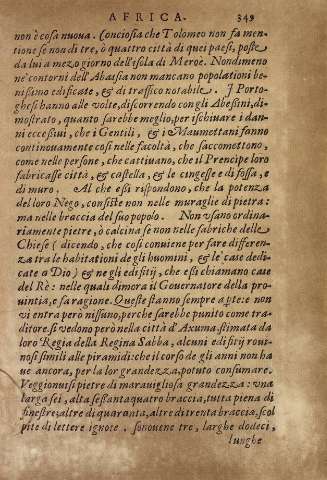 AFRICA. 349
non è cosa nuoua. Conciosia che Tolomeo non fa men-
tione se non di tre, ò quattro città di quei paesi, poste
da lui a mezo giorno dell'isola di Meroè. Nondimeno
ne' contorni dell'Abassia non mancano popolationi be-
nissimo edificate, & di traffico notabile. I Porto-
ghesi hanno alle volte, discorrendo con gli Abessini, di-
mostrato, quanto sarebbe meglio, per ischiuare i dan-
ni eccessiui, che i Gentili, & i Maumettani fanno
continouamente così nelle facoltà, che saccomettono,
come nelle persone, che cattiuano, che il Prencipe loro
fabricasse città, & castella, & le cingesse e di fossa, e
di muro. Al che essi rispondono, che la potenza
del loro Nego, consiste non nelle muraglie di pietra:
ma nelle braccia del suo popolo. Non vsano ordina-
riamente pietre, ò calcina se non nelle fabriche delle
Chiese (dicendo, che così conuiene per fare differen-
za tra le habitationi de gli huomini, & le case dedi-
cate a Dio) & ne gli edifitij, che essi chiamano case
del Rè: nelle quali dimora il Gouernatore della pro-
uintia, e fa ragione. Queste stanno sempre aperte: e non
vi entra però nissuno, perche sarebbe punito come tra-
ditore. si vedono però nella città d'Axuma stimata da
loro Regia della Regina Sabba, alcuni edifitij roui-
nosi simili alle piramidi: che il corso de gli anni non ha
ue ancora, per la lor grandezza, potuto consumare.
Veggionuisi pietre di marauigliosa grandezza: vna
larga sei, alta sessantaquattro braccia, tutta piena di
finestre; altre di quaranta, altre di trenta braccia, scol
pite di lettere ignote. sonouene tre, larghe dodeci,
lunghe